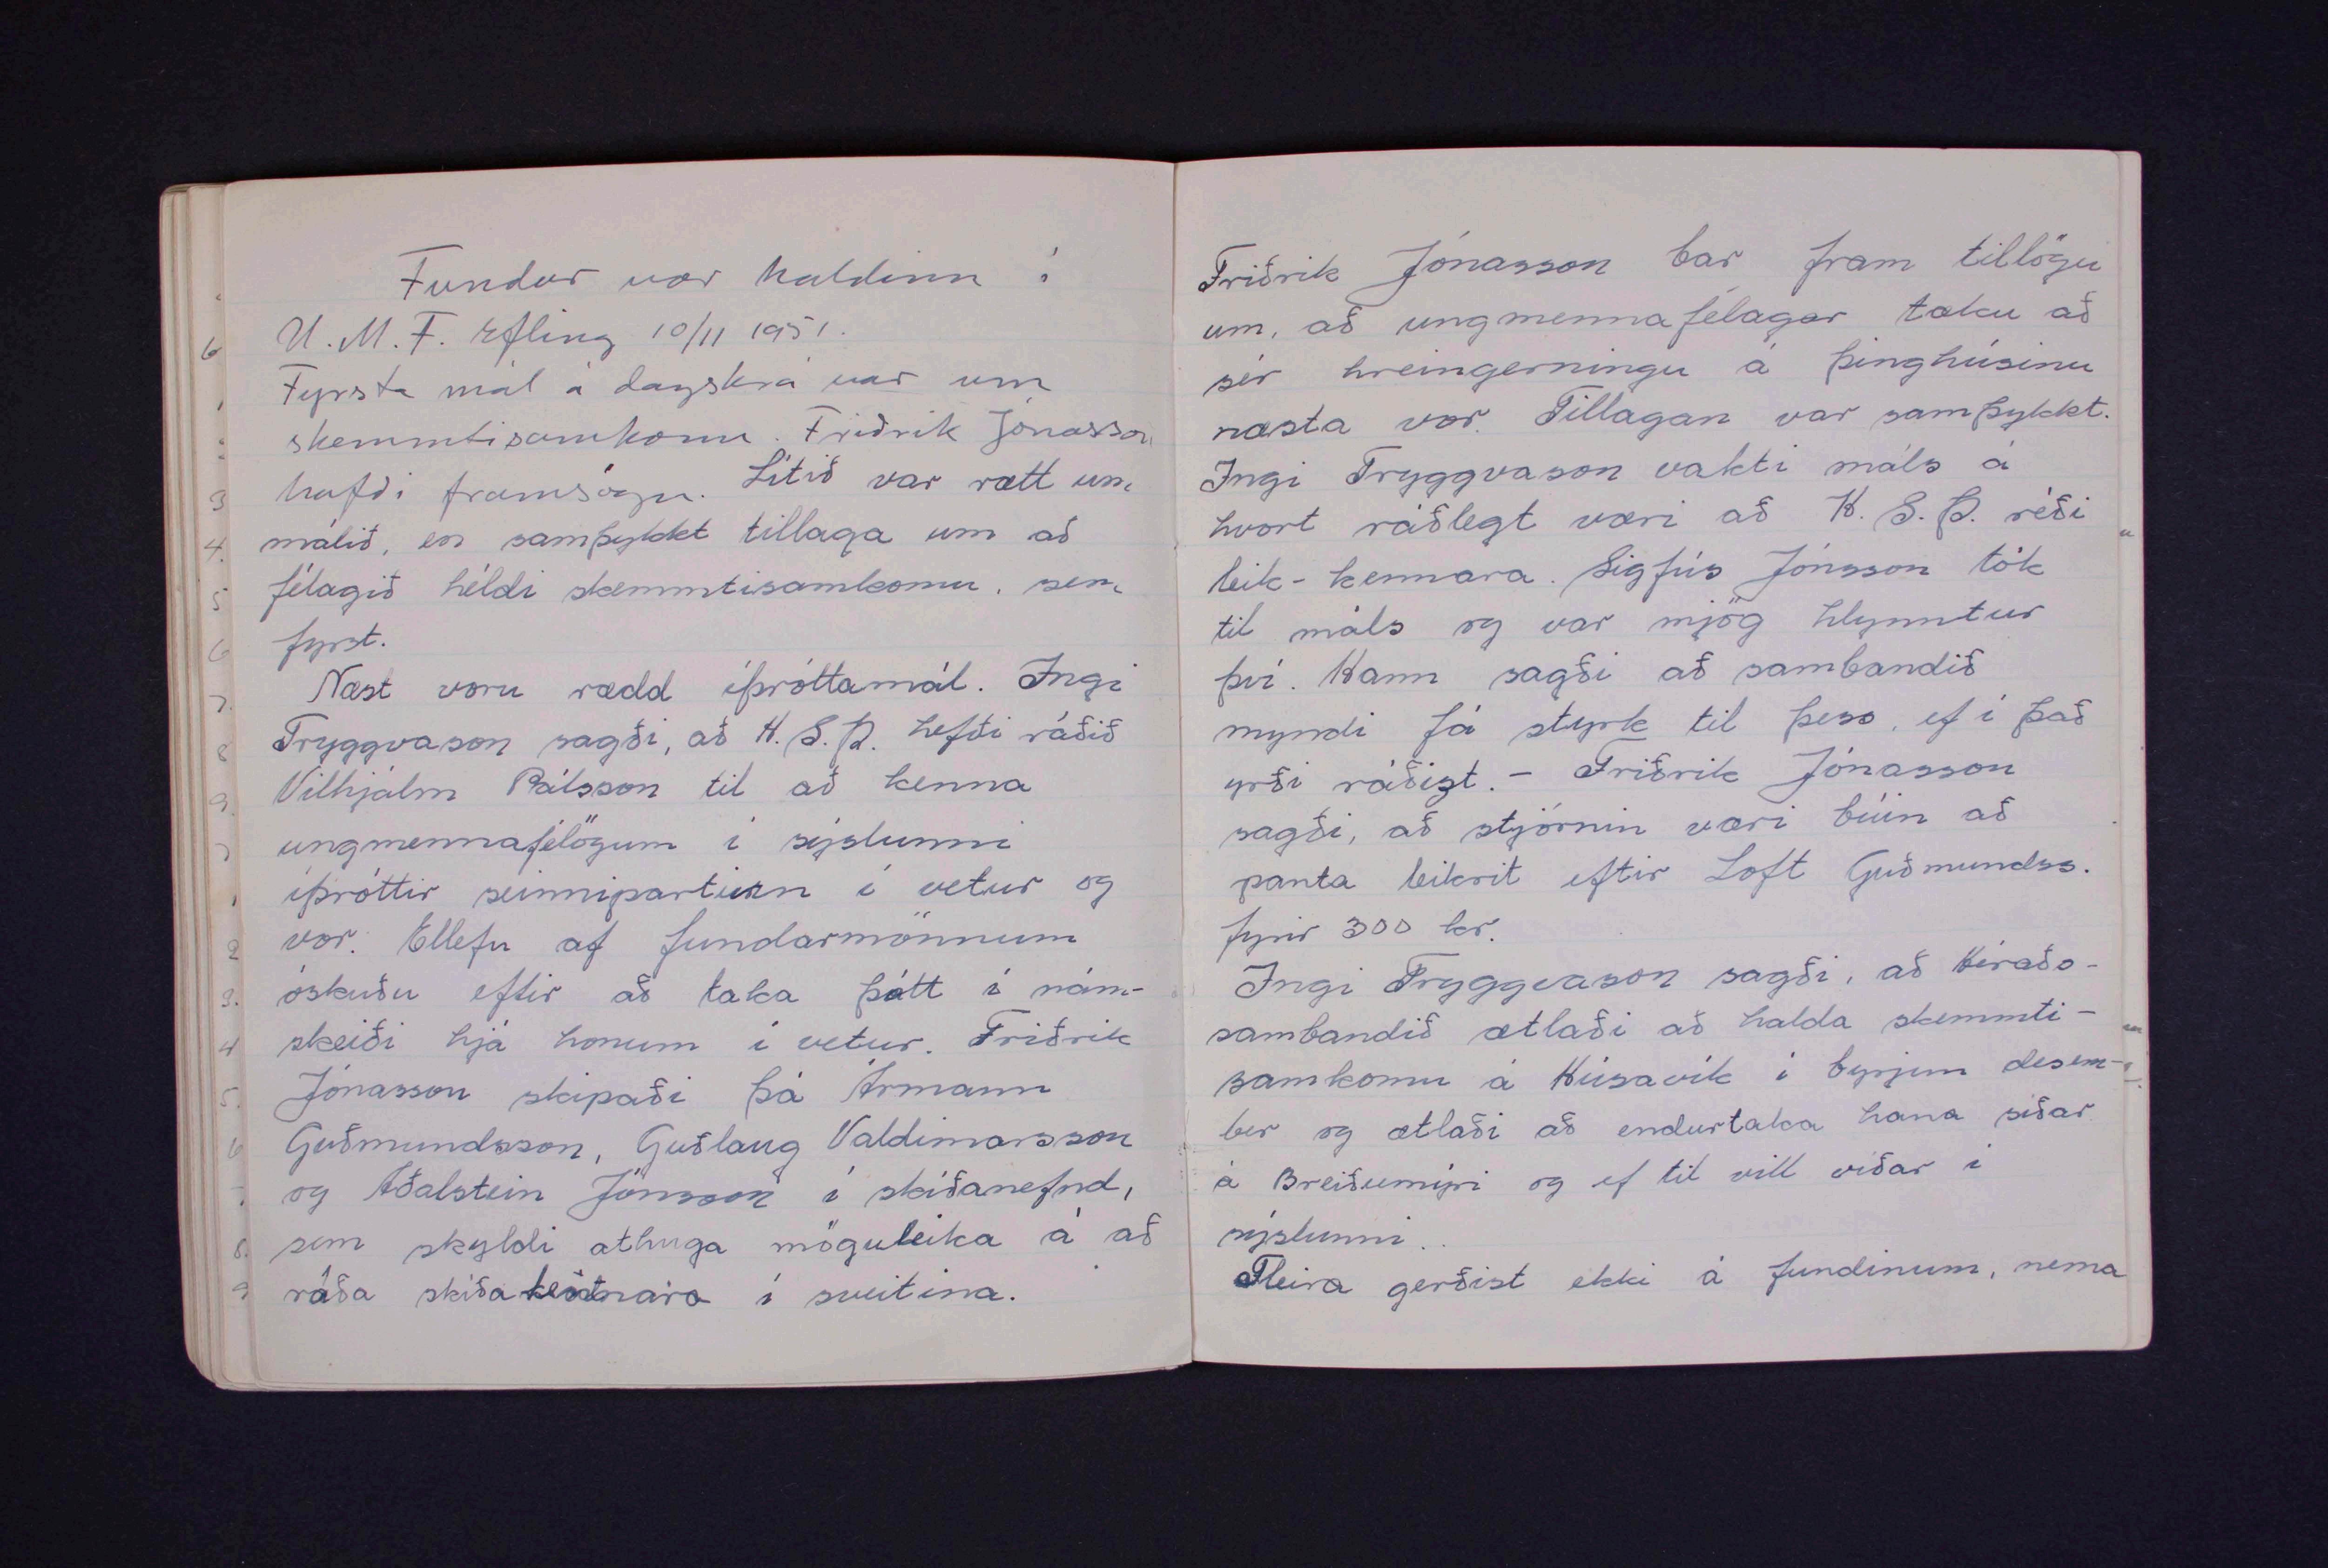 Fundur var haldinn í
U.M.F. Efling 10/11 1951.
Fyrsta mál á dagskrá var um
skemmtisamkomu. Friðrik Jónasson
hafði framsögu. Lítið var rætt um
málið, en samþykkt tillaga um að
félagið héldi skemmtisamkomu, sem
fyrst.
Næst voru rædd íþróttamál. Ingi
Tryggvason sagði, að H.S.Þ. hefði ráðið
Vilhjálm Pálsson til að kenna
ungmennafélögum í sýslunni
íþróttir seinnipartinn í vetur og
vor. Ellefu af fundarmönnum
óskuðu eftir að taka þátt í nám-
skeiði hjá honum í vetur. Friðrik
Jónasson skipaði þá Ármann
Guðmundsson, Guðlaug Valdimarsson
og Aðalstein Jónsson í skíðanefnd,
sem skyldi athuga möguleika á að
ráða skíðakennara í sveitina.
Friðrik Jónasson bar fram tillögu
um, að ungmennafélagar tæku að
sér hreingerningu á þinghúsinu
næsta vor. Tillagan var samþykkt.
Ingi Tryggvason vakti máls á
hvort ráðlegt væri að H.S.Þ. réði
leik-kennara. Sigfús Jónsson tók
til máls og var mjög hlynntur
því. Hann sagði að sambandið
myndi fá styrk til þess, ef í það
yrði ráðist. - Friðrik Jónasson
sagði, að stjórnin væri búin að
panta leikrit eftir Loft Guðmundss.
fyrir 300 kr.
Ingi Tryggvason sagði, að Héraðs-
sambandið ætlaði að halda skemmti-
samkomu á Húsavík í byrjun desem-
ber og ætlaði að endurtaka hana síðar
á Breiðumýri og ef til vill víðar í
sýslunni..
Fleira gerðist ekki á fundinum, nema